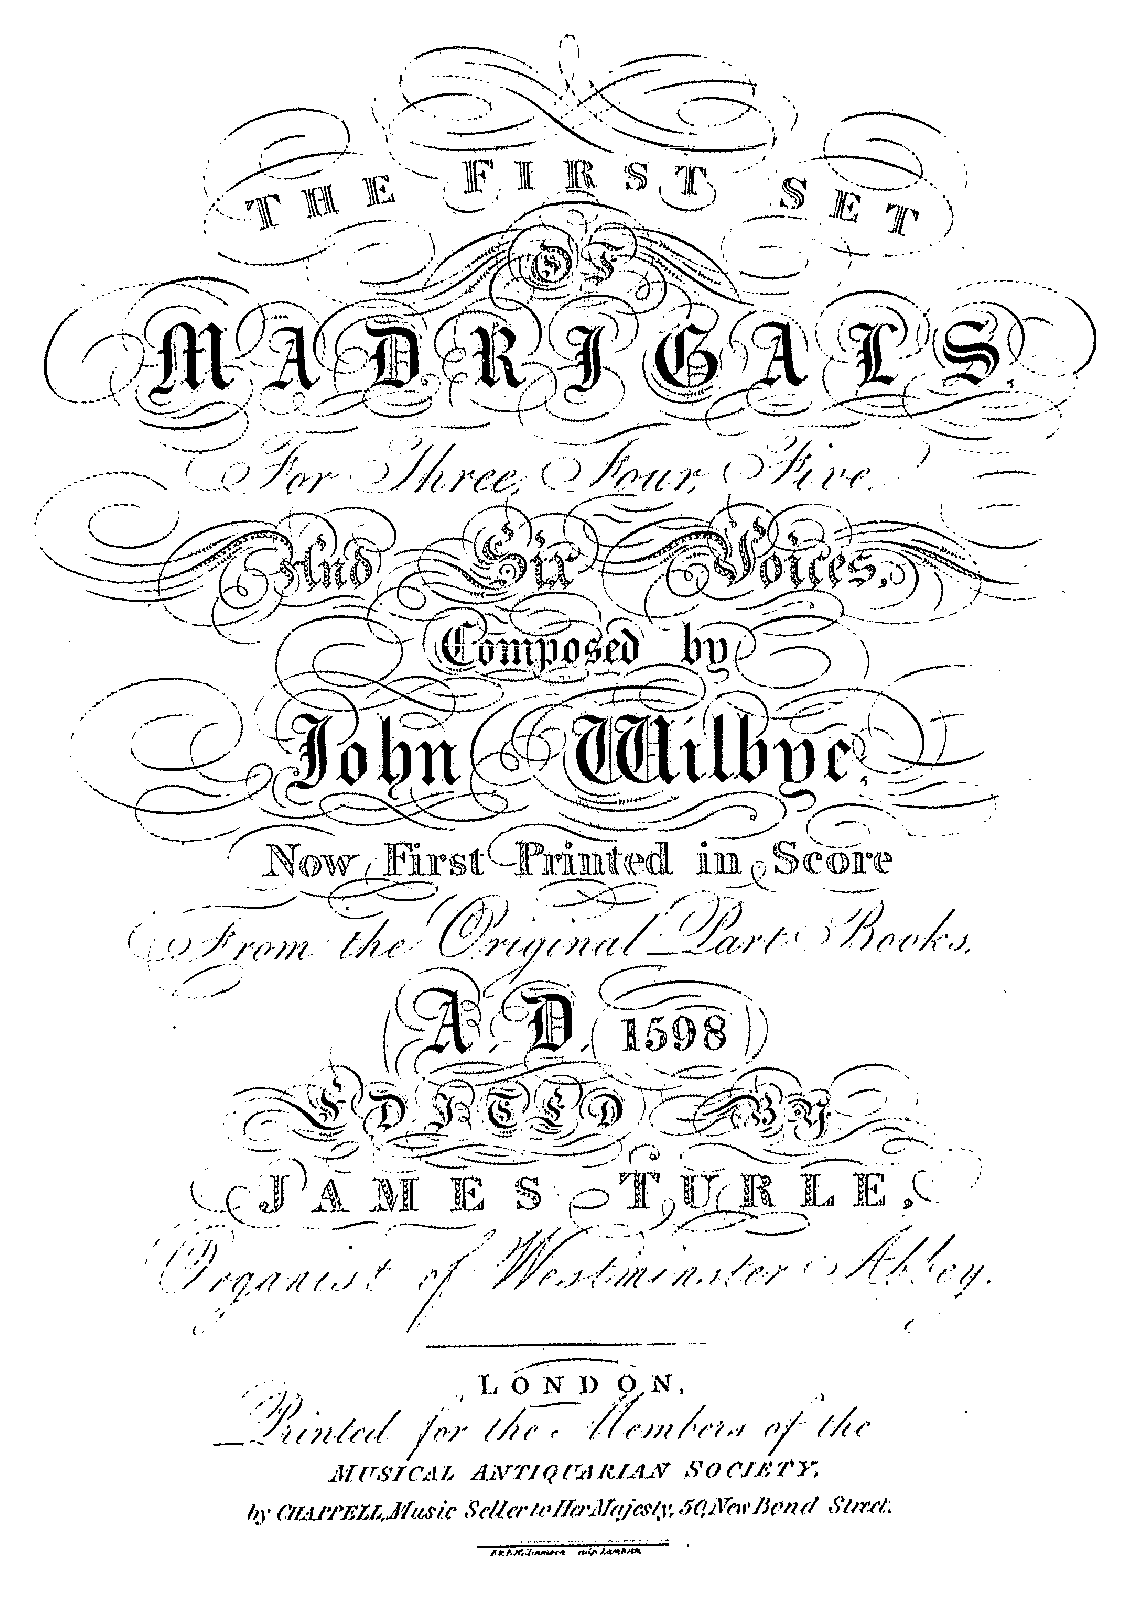 THE FIRST SET
OF
MADRIGALS,
For Three, Four, Five,
And Six Voices,
Composed by
John Wilbye,
Now First Printed in Score
From the Original Part Books,
A. D. 1598
EDITED BY
JAMES TURLE,
Organist of Westminster Abbey.
LONDON,
Printed for the Members of the
MUSICAL ANTIQUARIAN SOCIETY,
by CHAPPELL, Music Seller to Her Majesty, 50, New Bond Street.